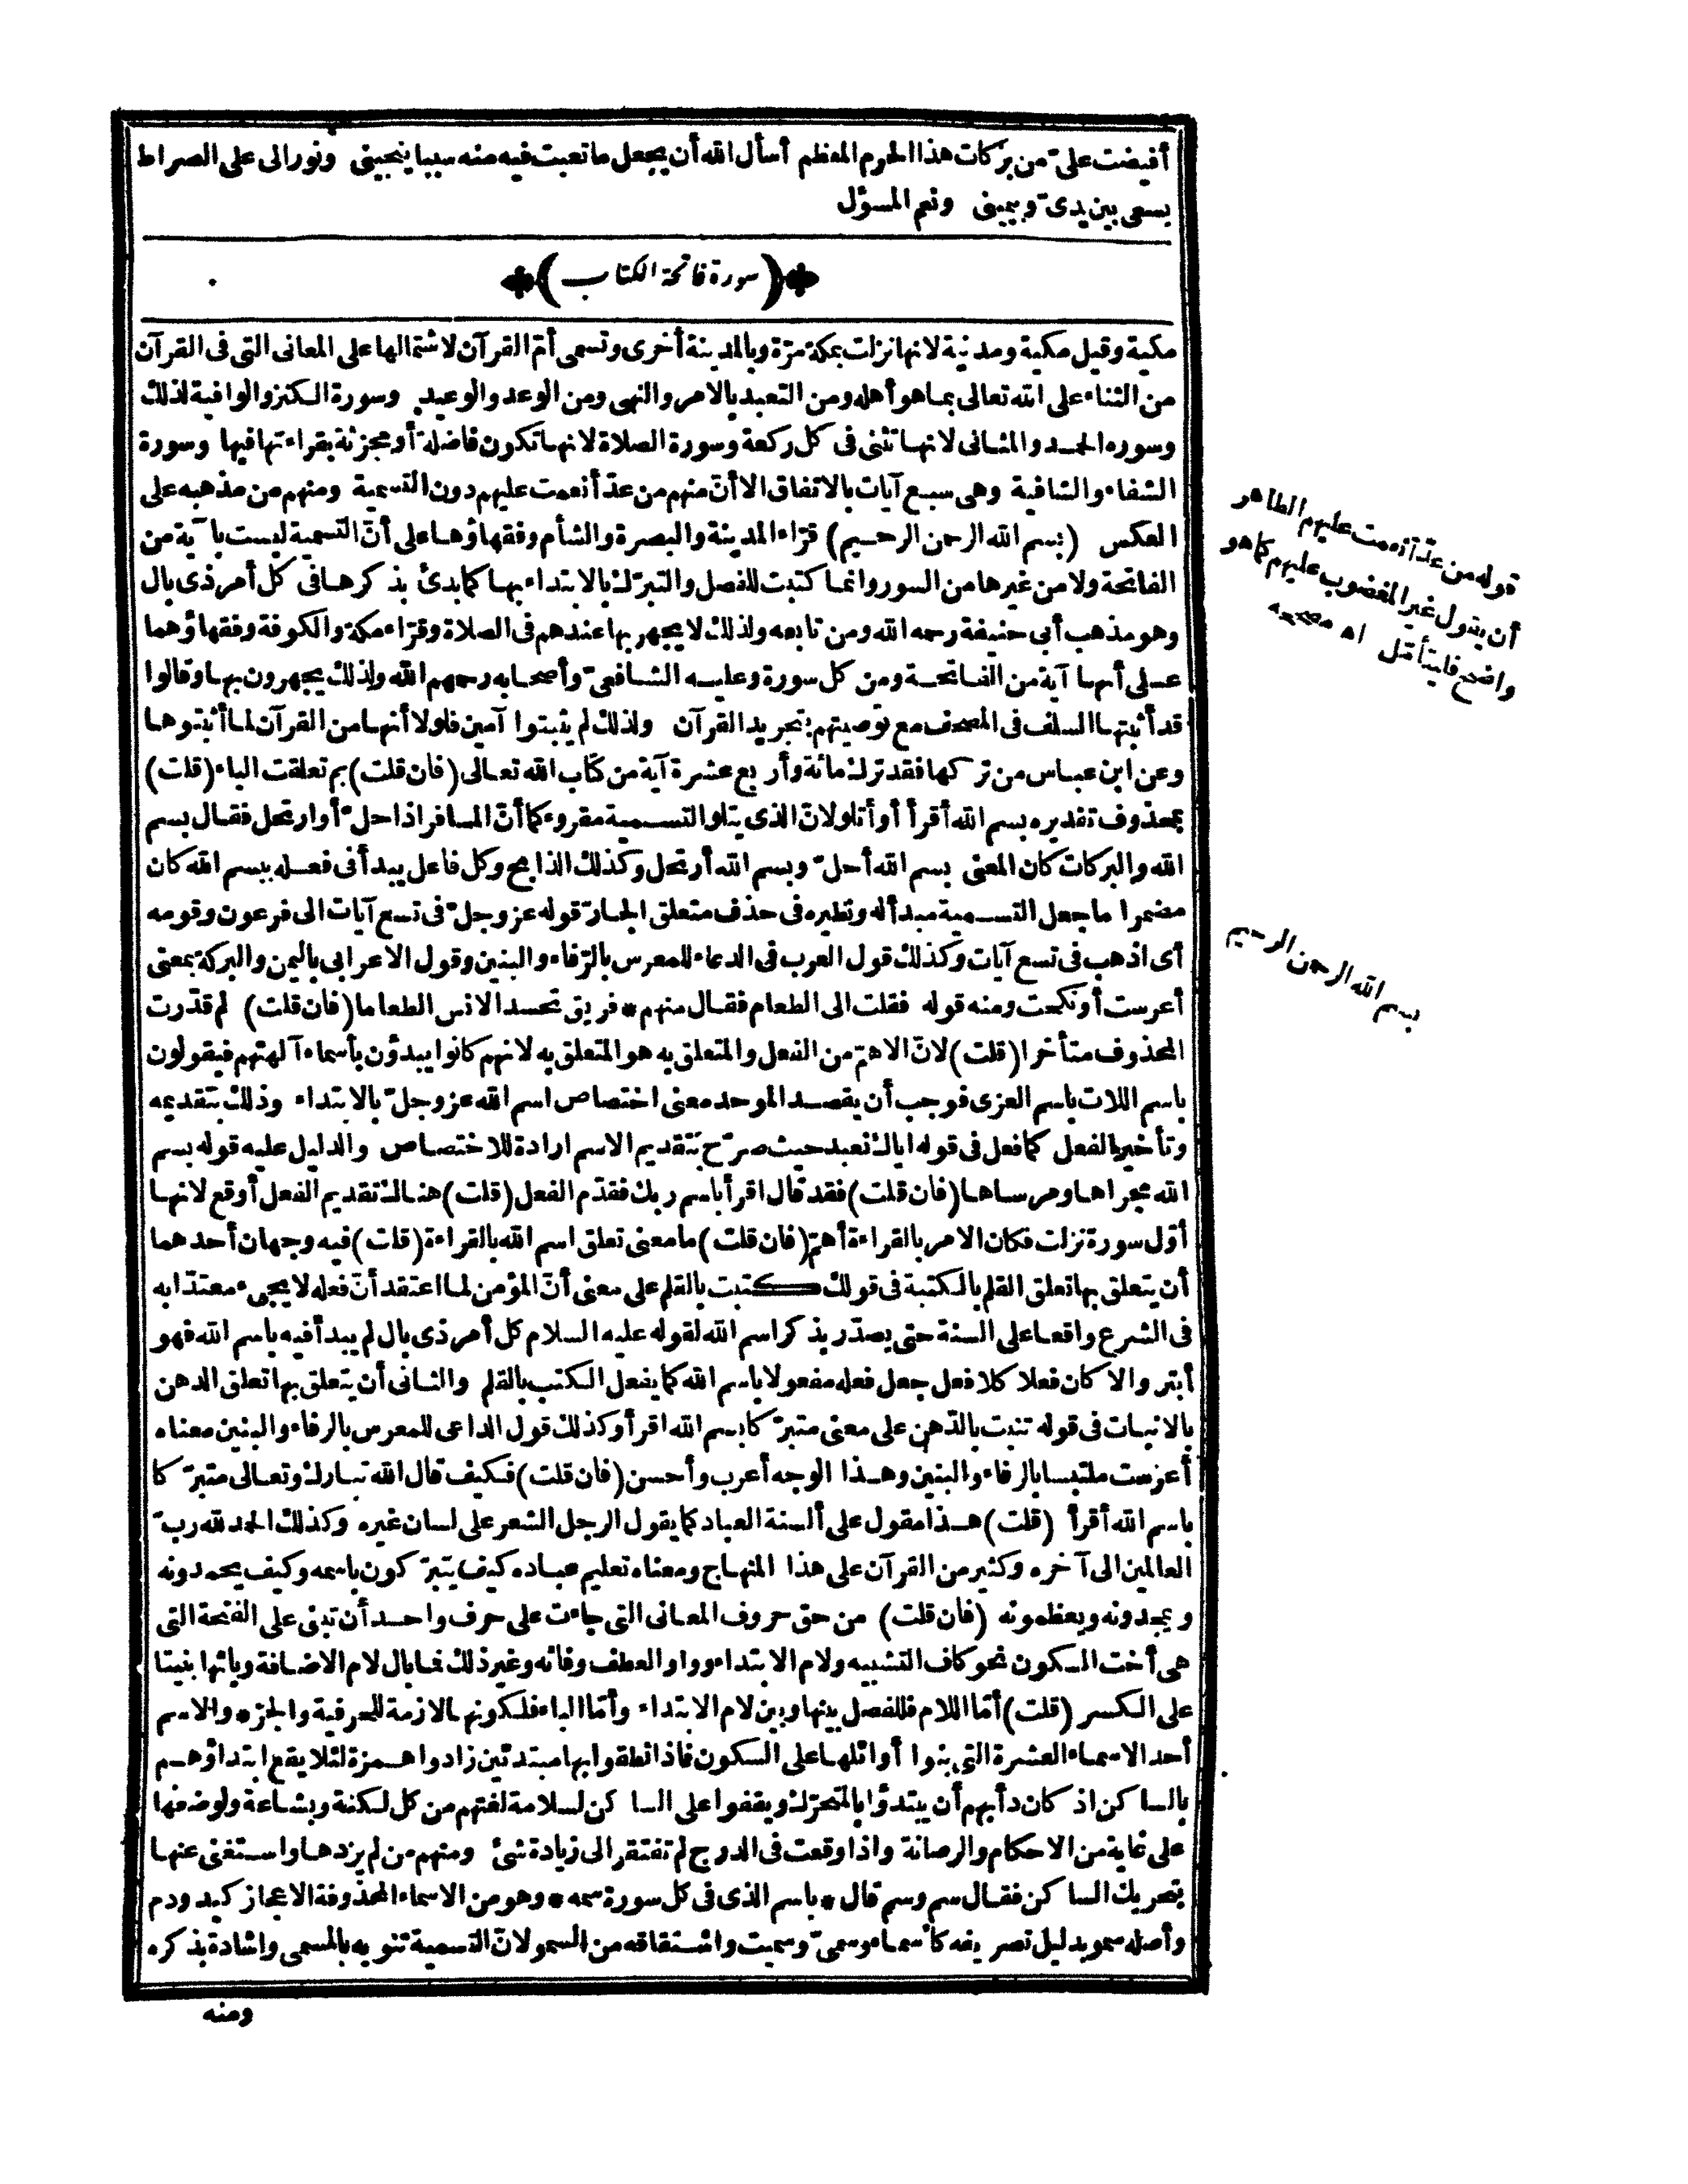 أفيضت علىّ من بركات هذا الحرم المعظم أسأل الله أن يجعل ما تعبت فيه منه سببا ينجينى ونورا لى على الصراط
يسعى بين يدىّ وبيمينى ونعم المسؤل
﴿سورة فاتحة الكتاب﴾
مكية وقيل مكية ومدنية لانها نزلت بمكة مرّة وبالمدينة أخرى وتسمى أمّ القرآن لاشتمالها على المعانى التى فى القرآن
من الثناء على الله تعالى بما هو أهله ومن التعبد بالامر والنهى ومن الوعد والوعيد وسورة الكنز والوافية لذلك
وسوره الحمد والمثانى لانها تثنى فى كل ركعة وسورة الصلاة لانها تكون فاضلة أو مجزئة بقراءتها فيها وسورة
الشفاء والشافية وهى سبع آيات بالاتفاق الا أنّ منهم من عدّ أنعمت عليهم دون التسمية ومنهم من مذهبه على
العكس (بسم الله الرحمن الرحيم) قرّاء المدينة والبصرة والشأم وفقهاؤها على أنّ التسمية ليست بآية من
الفاتحة ولا من غيرها من السور وانما كتبت للفصل والتبرّك بالابتداء بها كما بدئ بذكرها فى كل أمر ذى بال
وهو مذهب أبى حنيفة رحمه الله ومن تابعه ولذلك لا يجهر بها عندهم فى الصلاة وقرّاء مكة والكوفة وفقهاؤهما
على أنها آية من الفاتحة ومن كل سورة وعليه الشافعىّ وأصحابه رحمهم الله ولذلك يجهرون بها وقالوا
قد أثبتها السلف فى المصحف مع توصيتهم بتجريد القرآن ولذلك لم يثبتوا آمين فلولا أنها من القرآن لما أثبتوها
وعن ابن عباس من تركها فقد ترك مائة وأربع عشرة آية من كتاب الله تعالى (فان قلت) بم تعلقت الباء (قلت)
بمحذوف تقديره بسم الله أقرأ أو أتلو لانّ الذى يتلو التسمية مقروء كما أنّ المسافر اذا حلّ أو ارتحل فقال بسم
الله والبركات كان المعنى بسم الله أحلّ وبسم الله أرتحل وكذلك الذابح وكل فاعل يبدأ فى فعله ببسم الله كان
مضمرا ما جعل التسمية مبدأ له ونظيره فى حذف متعلق الجارّ قوله عز وجلّ فى تسع آيات الى فرعون وقومه
أى اذهب فى تسع آيات وكذلك قول العرب فى الدعاء للمعرس بالرّفاء والبنين وقول الاعرابى باليمن والبركة بمعنى
أعرست أو نكحت ومنه قوله فقلت الى الطعام فقال منهم * فريق نحسد الانس الطعاما (فان قلت) لم قدّرت
المحذوف متأخرا (قلت) لانّ الاهمّ من الفعل والمتعلق به هو المتعلق به لانهم كانوا يبدؤن بأسماء آلهتهم فيقولون
باسم اللات باسم العزى فوجب أن يقصد الموحد معنى اختصاص اسم الله عز وجلّ بالابتداء وذلك بتقديمه
وتأخير الفعل كما فعل فى قوله اياك نعبد حيث صرّح بتقديم الاسم ارادة للاختصاص والدليل عليه قوله بسم
الله مجراها ومرساها (فان قلت) فقد قال اقرأ باسم ربك فقدّم الفعل (قلت) هناك تقديم الفعل أوقع لانها
أوّل سورة نزلت فكان الامر بالقراءة أهمّ (فان قلت) ما معنى تعلق اسم الله بالقراءة (قلت) فيه وجهان أحدهما
أن يتعلق بها تعلق القلم بالكتبة فى قولك كتبت بالقلم على معنى أنّ المؤمن لما اعتقد أنّ فعله لا يجىء معتدّا به
فى الشرع واقعا على السنة حتى يصدّر بذكر اسم الله لقوله عليه السلام كل أمر ذى بال لم يبدأ فيه باسم الله فهو
أبتر والا كان فعلا كلا فعل جعل فعله مفعولا باسم الله كما يفعل الكتب بالقلم والثانى أن يتعلق بها تعلق الدهن
بالانبات فى قوله تنبت بالدّهن على معنى متبرّكا بسم الله اقرأ وكذلك قول الداعى للمعرس بالرفاء والبنين معناه
أعرست ملتبسا بالرفاء والبنين وهذا الوجه أعرب وأحسن (فان قلت) فكيف قال الله تبارك وتعالى متبرّكا
باسم الله أقرأ (قلت) هذا مقول على ألسنة العباد كما يقول الرجل الشعر على لسان غيره وكذلك الحمد لله ربّ
العالمين الى آخره وكثير من القرآن على هذا المنهاج ومعناه تعليم عباده كيف يتبرّكون باسمه وكيف يحمدونه
ويمجدونه ويعظمونه (فان قلت) من حق حروف المعانى التى جاءت على حرف واحد أن تبنى على الفتحة التى
هى أخت السكون نحو كاف التشبيه ولام الابتداء وواو العطف وفائه وغير ذلك فما بال لام الاضافة وبائها بنيتا
على الكسر (قلت) أمّا اللام فللفصل بينها وبين لام الابتداء وأمّا الباء فلكونها لازمة للحرفية والجر والاسم
أحد الاسماء العشرة التى بنوا أوائلها على السكون فاذا نطقوا بها مبتدئين زادوا همزة لئلا يقع ابتداؤهم
بالساكن اذ كان دأبهم أن يبتدؤا بالمتحرّك ويقفوا على الساكن لسلامة لغتهم من كل لكنة وبشاعة ولوضعها
على غاية من الاحكام والرصانة واذا وقعت فى الدرج لم تفتقر الى زيادة شئ ومنهم من لم يزدها واستغنى عنها
بتحريك الساكن فقال سم وسم قال * باسم الذى فى كل سورة سمه * وهو من الاسماء المحذوفة الاعجاز كيد ودم
وأصله سمو بدليل تصريفه كأسماء وسمىّ وسميت واشتقاقه من السمو لانّ التسمية تنويه بالمسمى واشادة بذكره
ومنه
قوله من عدّ أنعمت عليهم الظاهر
أن يقول غير المغضوب عليهم كما هو
واضح فليتأمّل اه مصححه
بسم الله الرحمن الرحيم